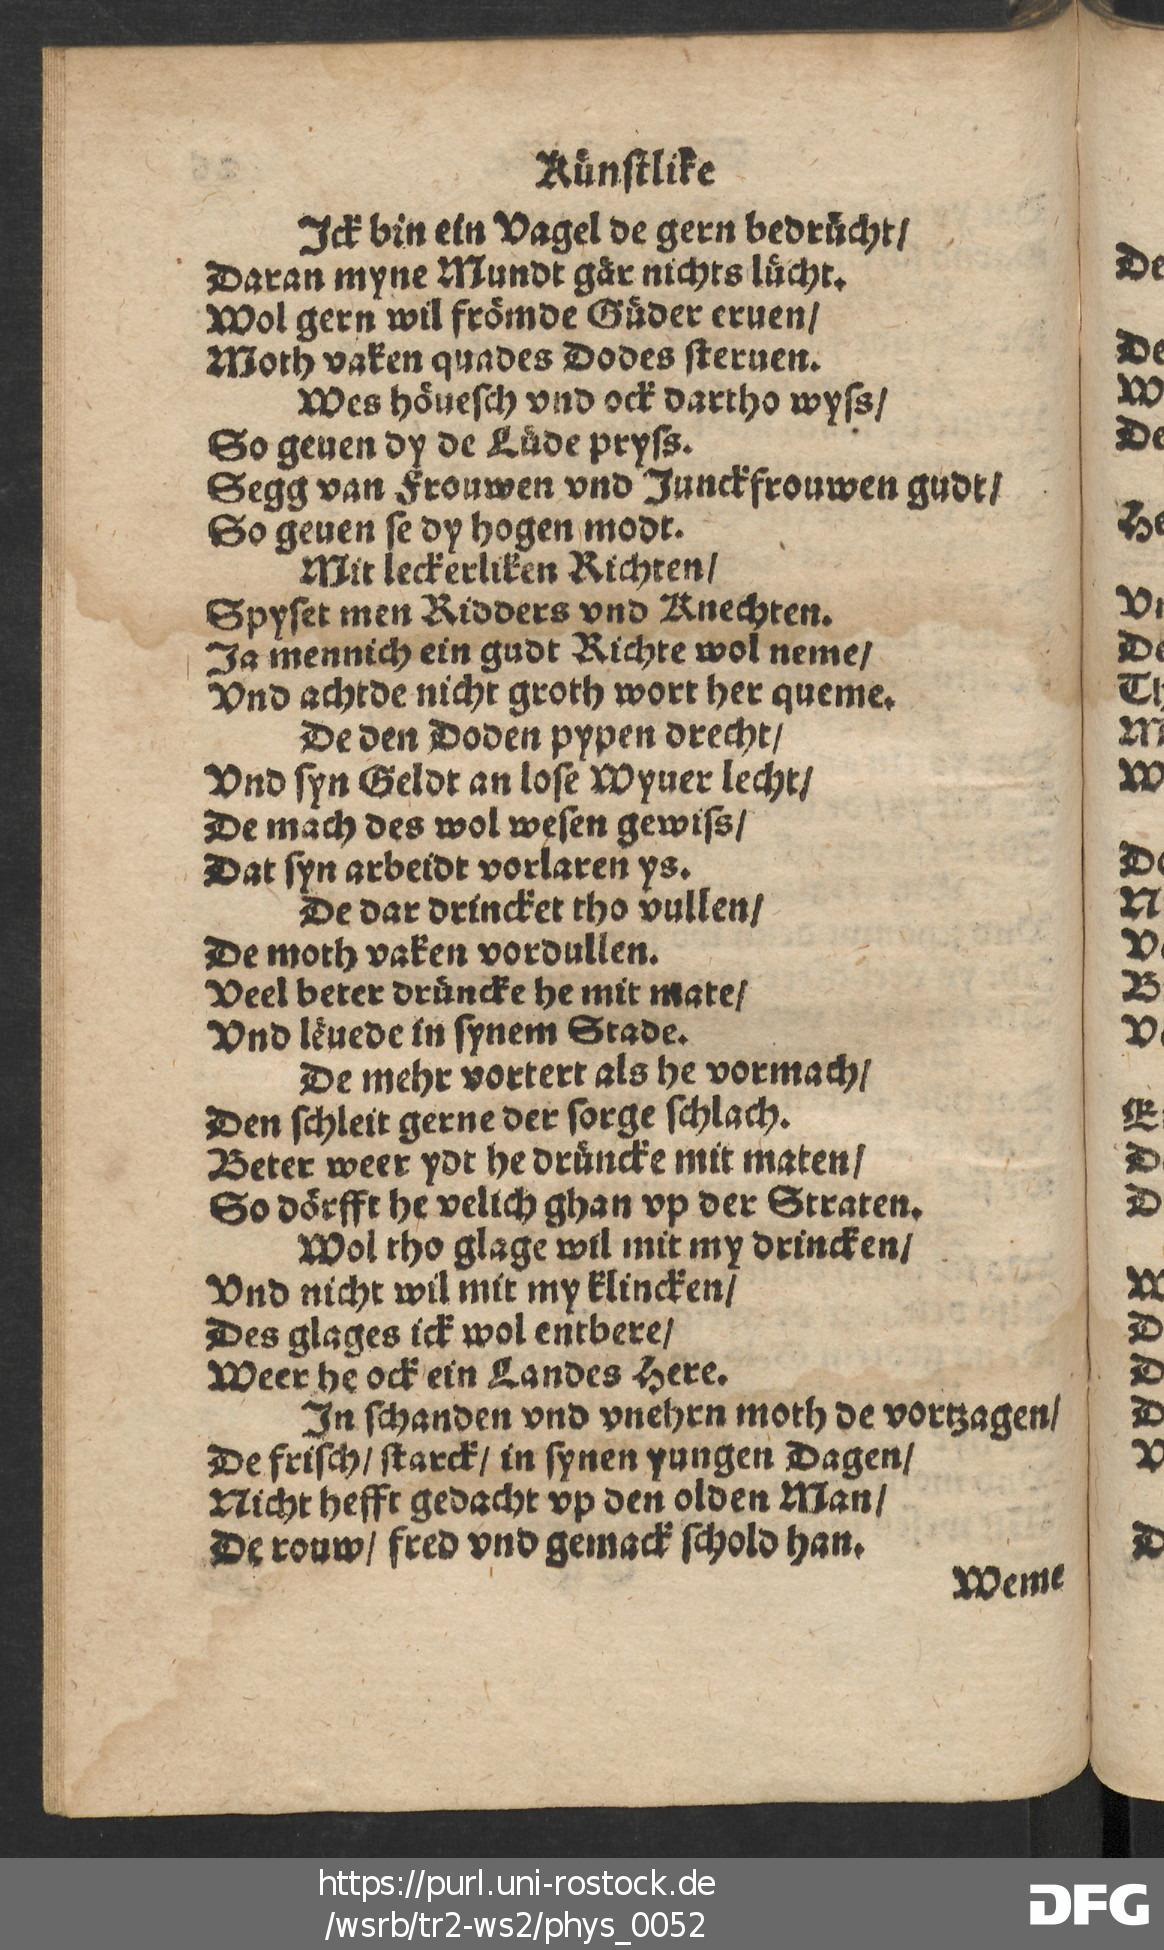 Kuͤnstlike
Jck bin ein Vagel de gern bedruͤcht/
Daran myne Mundt gaͤr nichts luͤcht.
Wol gern wil froͤmde Guͤder eruen/
Moth vaken quades Dodes steruen.
Wes hoͤuesch vnd ock dartho wyſs/
So geuen dy de Luͤde pryſs.
Segg van Frouwen vnd Junckfrouwen gudt/
So geuen ſe dy hogen modt.
Mit leckerliken Richten/
Spyſet men Ridders vnd Knechten.
Ja mennich ein gudt Richte wol neme/
Vnd achtde nicht groth wort her queme.
De den Doden pypen drecht/
Vnd ſyn Geldt an loſe Wyuer lecht/
De mach des wol weſen gewiſs/
Dat ſyn arbeidt vorlaren ys.
De dar drincket tho vullen/
De moth vaken vordullen.
Veel beter druͤncke he mit mate/
Vnd leͤuede in ſynem Stade.
De mehr vortert als he vormach/
Den ſchleit gerne der ſorge ſchlach.
Beter weer ydt he druͤncke mit maten/
So doͤrfft he velich ghan vp der Straten.
Wol tho glage wil mit my drincken/
Vnd nicht wil mit my klincken/
Des glages ick wol entbere/
Weer he ock ein Landes Here.
In ſchanden vnd vnehrn moth de vortzagen/
De friſch/ ſtarck/ in ſynen yungen Dagen/
Nicht hefft gedacht vp den olden Man/
De rouw/ fred vnd gemack ſchold han.
Weme
De
De
W
De
He
Vn
De
Th
W
N
B
E
D
D
W
D
D
D
V
D
https://purl.uni-rostock.de
/wsrb/tr2-ws2/phys_0052
DFG